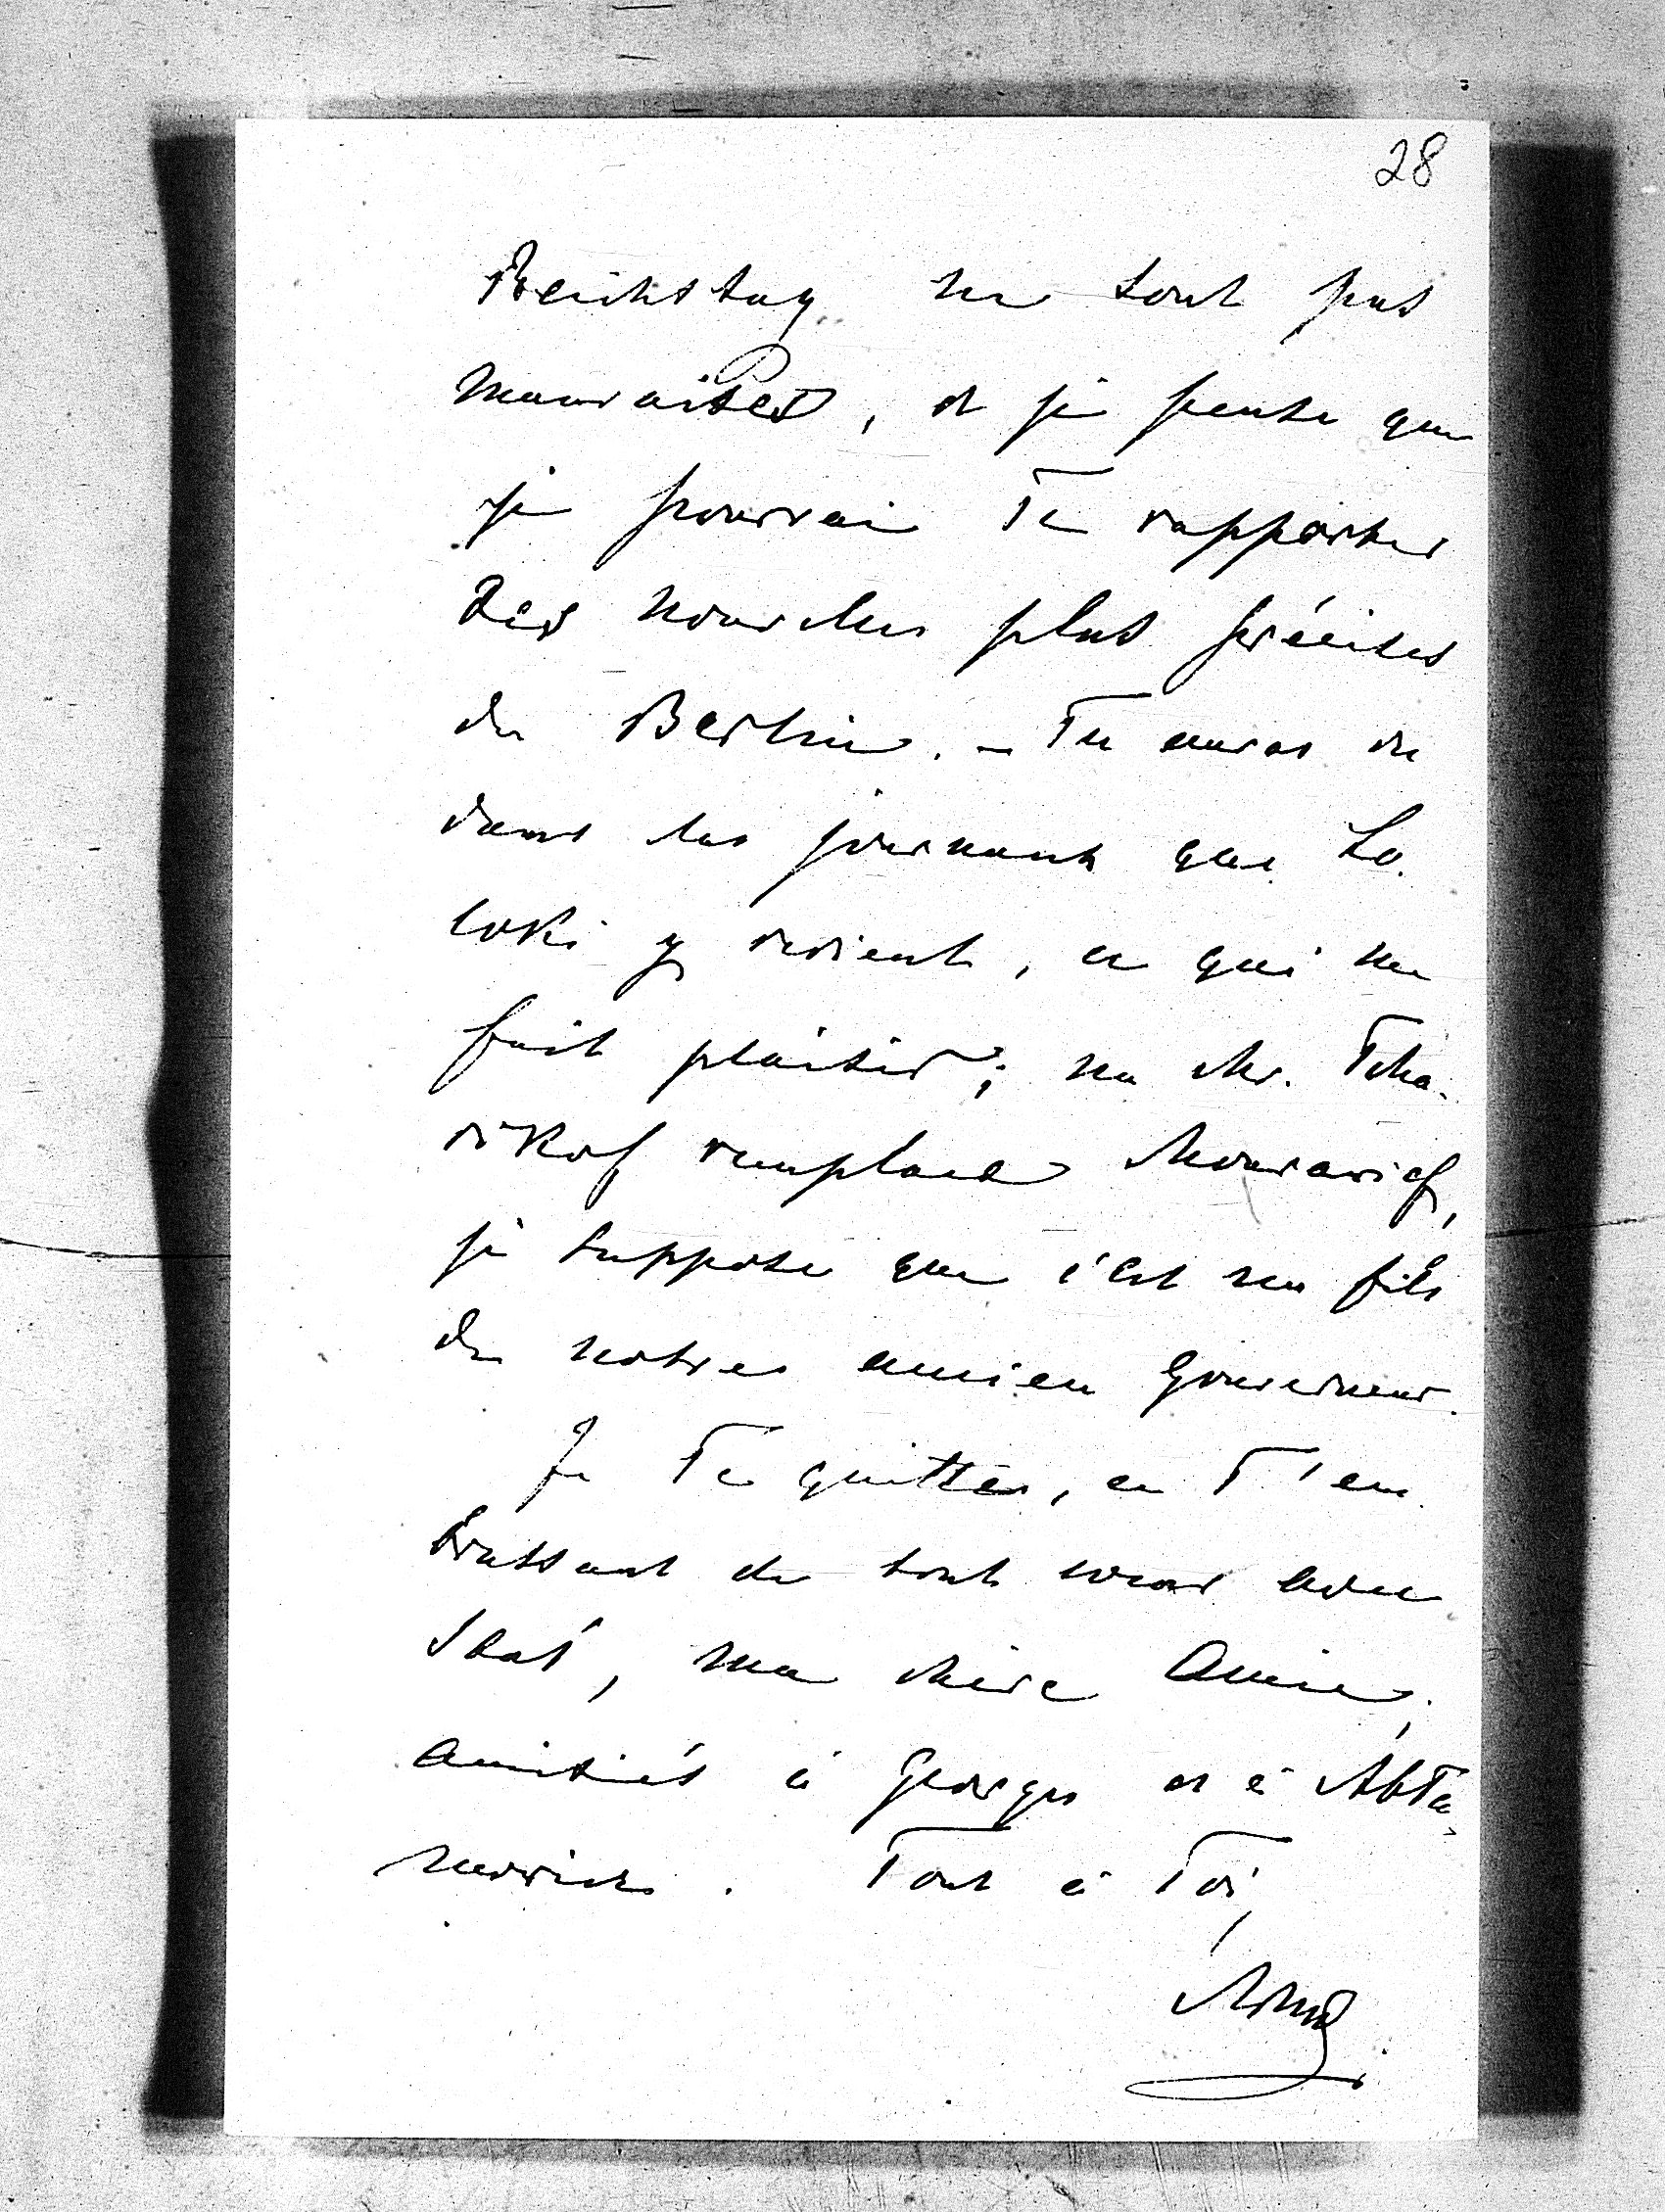 28
Reichstag ne sont pas
mauvaises, et je pense que
je pourrai Te rapporter
des nouvelles plus précises
de Berlin. – Tu auras vu
dans les journaux que Lo
coki y revient, ce qui me
fait plaisir; un Mr. Tcha-
rikof remplace Mouravief,
je suppose que c'est un fils
de notre ancien Gouverneur.
Je Te quitte, en T'em
brassant de tout coeur avec
Stas', ma chère Amie,
amitiés à Georges et à
Tout à Toi,